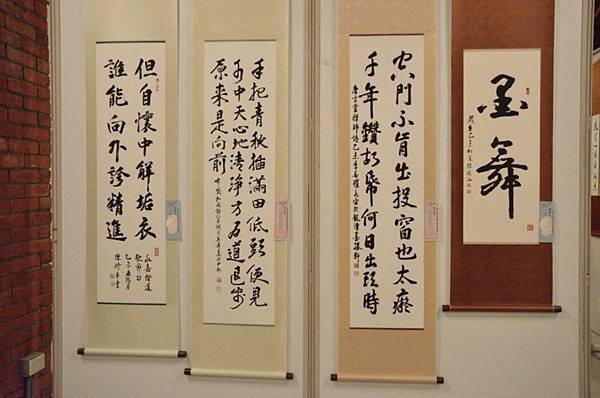 墨舞
空門不肯出投窗也太癡
千年鑽故紙何日出頭時
唐古靈禪師詩乙未季春
手把青秧插滿田低頭便見
水中天心地清淨方為道退步
原來是向前
但自懷中解垢衣
誰能向外誇精進
永嘉證道